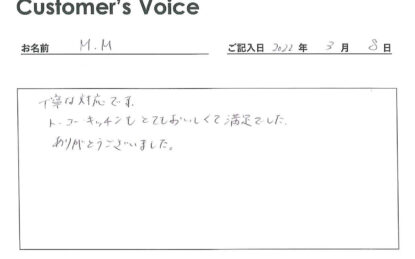 Customer's Voice
お名前 M.M ご記入日 2022 年 3 月 8 日
丁寧な対応です。
トーコーキッチンもとてもおいしくて満足でした。
ありがとうございました。